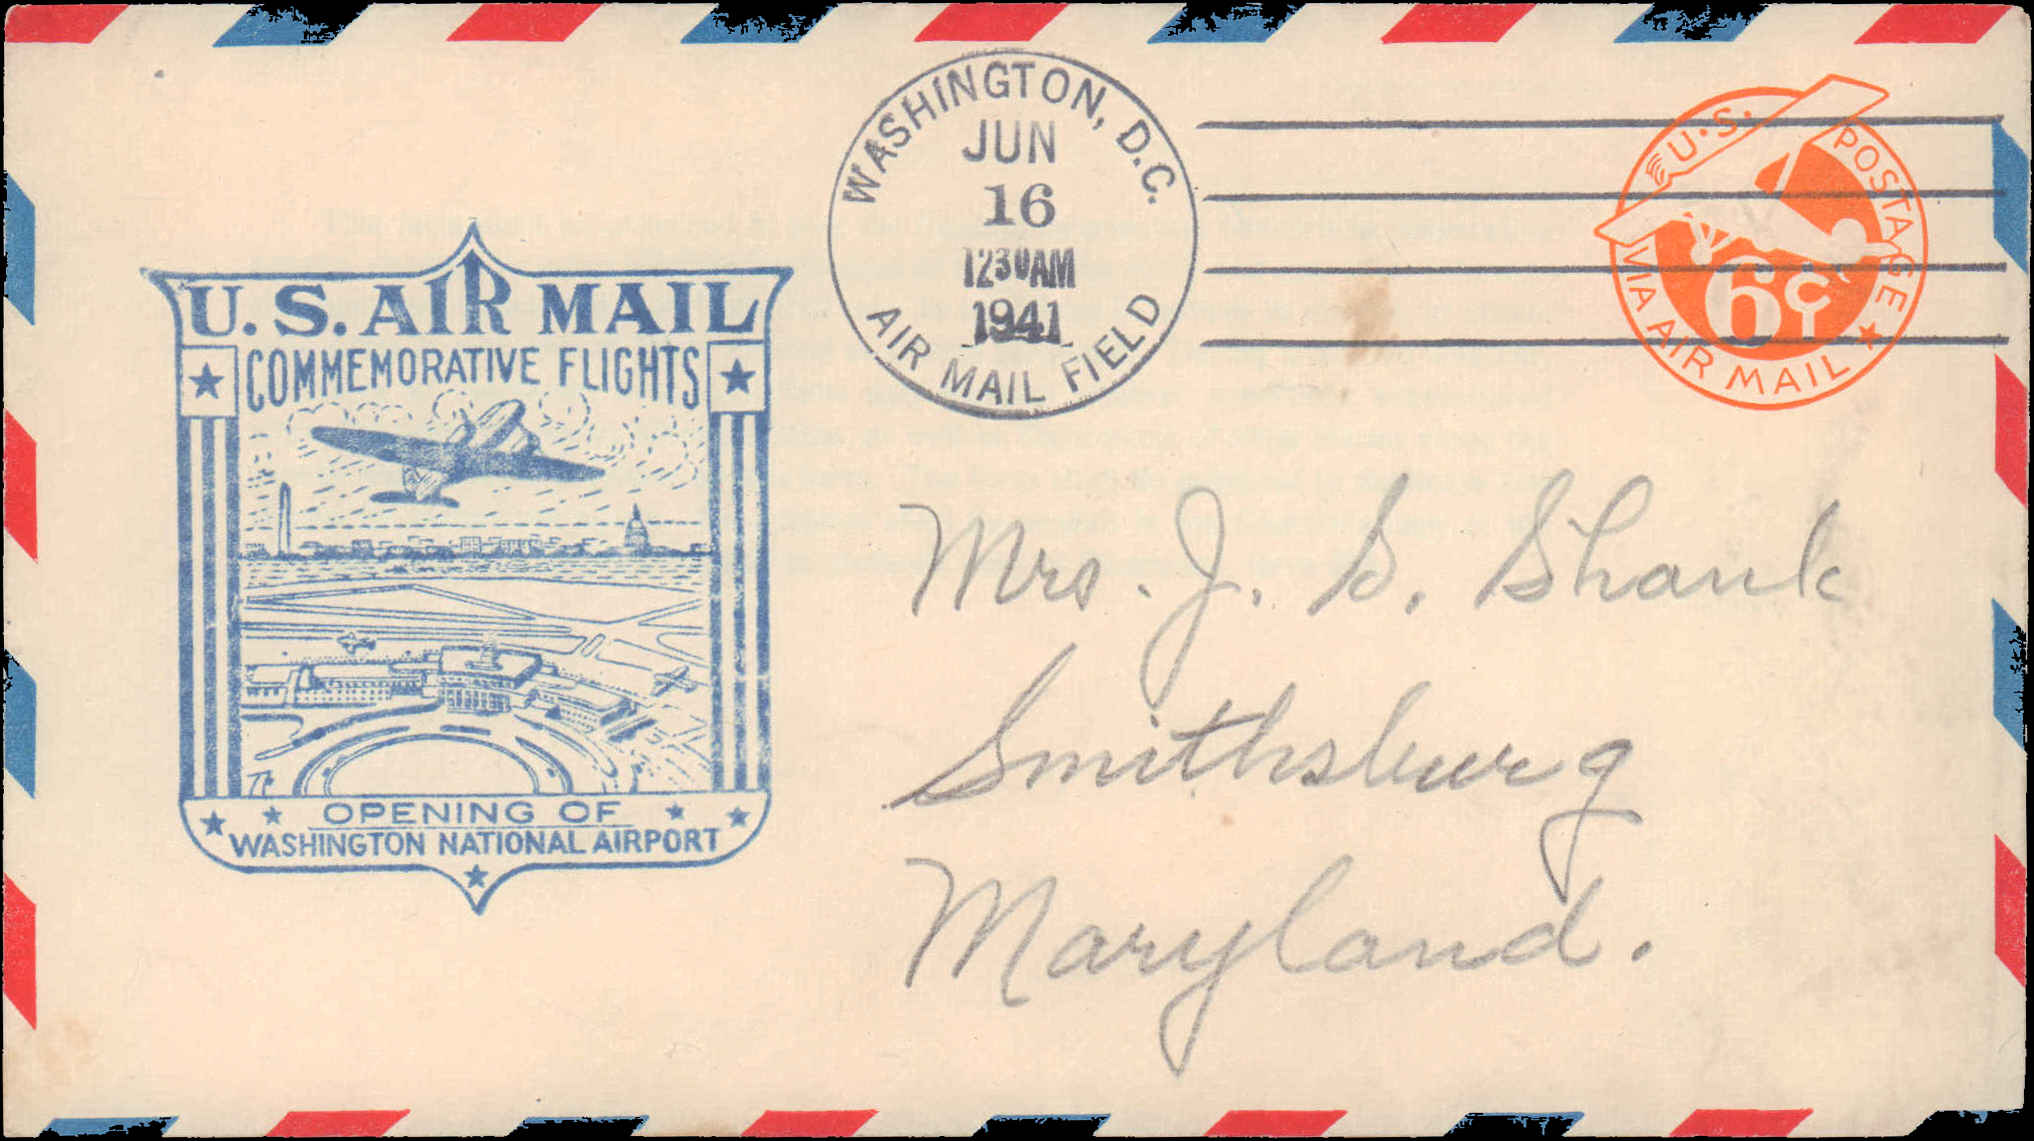 WASHINGTON, D.C.
JUN
16
1230AM
1941
AIR MAIL FIELD
U.S. POSTAGE
6¢
VIA AIR MAIL
U.S. AIR MAIL
COMMEMORATIVE FLIGHTS
OPENING OF
WASHINGTON NATIONAL AIRPORT
Mrs. J. S. Shank
Smithsburg
Maryland.